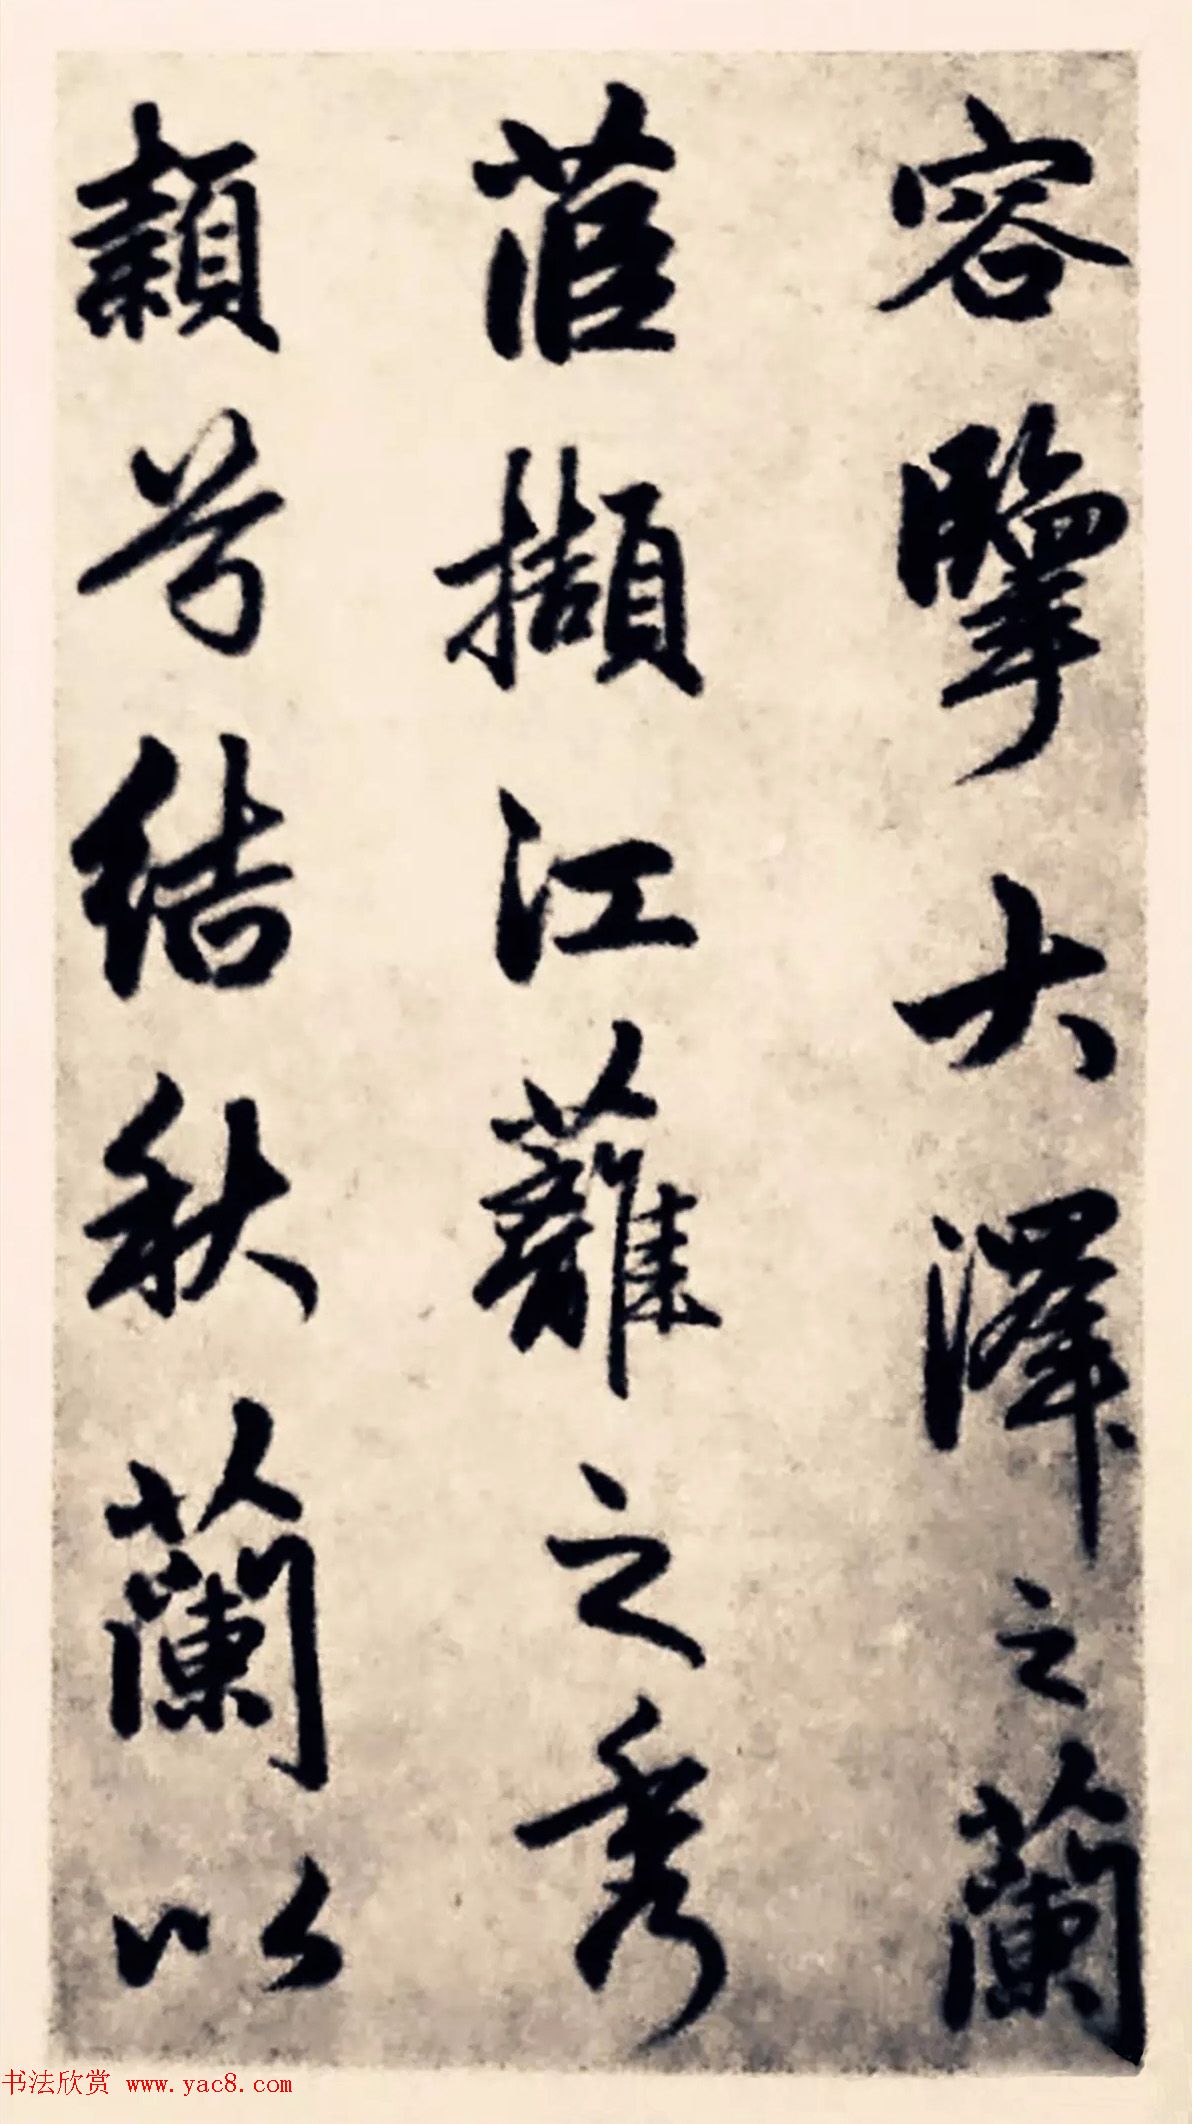 容擥大澤之蘭
茝擷江蘺之秀
穎兮結秋蘭以
书法欣赏 www.yac8.com